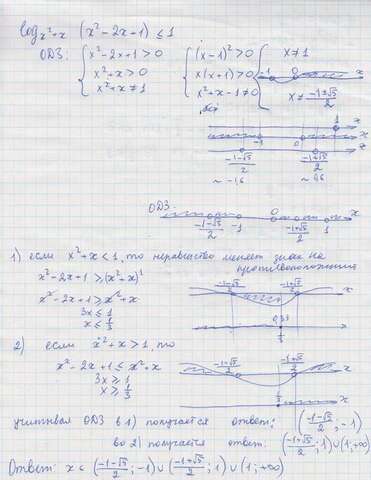 log x²+x (x²-2x+1) ≤ 1
ОДЗ: { x²-2x+1>0 { (x-1)²>0 { x≠1
x²+x>0 x(x+1)>0 -1 0 x
x²+x≠1 x²+x-1≠0 x≠ (-1±√5)/2
1 x
-1 0 x
(-1-√5)/2 (-1+√5)/2 x
~ -1,6 ~ 0,6
ОДЗ (-1-√5)/2 -1 0 (-1+√5)/2 1 x
1) если x²+x<1, то неравенство меняет знак на
противоположный
x²-2x+1 ≥ (x²+x)¹
x²-2x+1 ≥ x²+x (-1-√5)/2 (-1+√5)/2 x
3x ≤ 1 0,33
x ≤ 1/3 1/3 x
2) если x²+x>1, то
x²-2x+1 ≤ x²+x (-1-√5)/2 (-1+√5)/2 x
3x ≥ 1
x ≥ 1/3 1/3 x
учитывая ОДЗ в 1) получается ответ: ((-1-√5)/2; -1)
во 2) получается ответ: ((-1+√5)/2; 1)∪(1; +∞)
Ответ: x ∈ ((-1-√5)/2; -1)∪((-1+√5)/2; 1)∪(1; +∞)